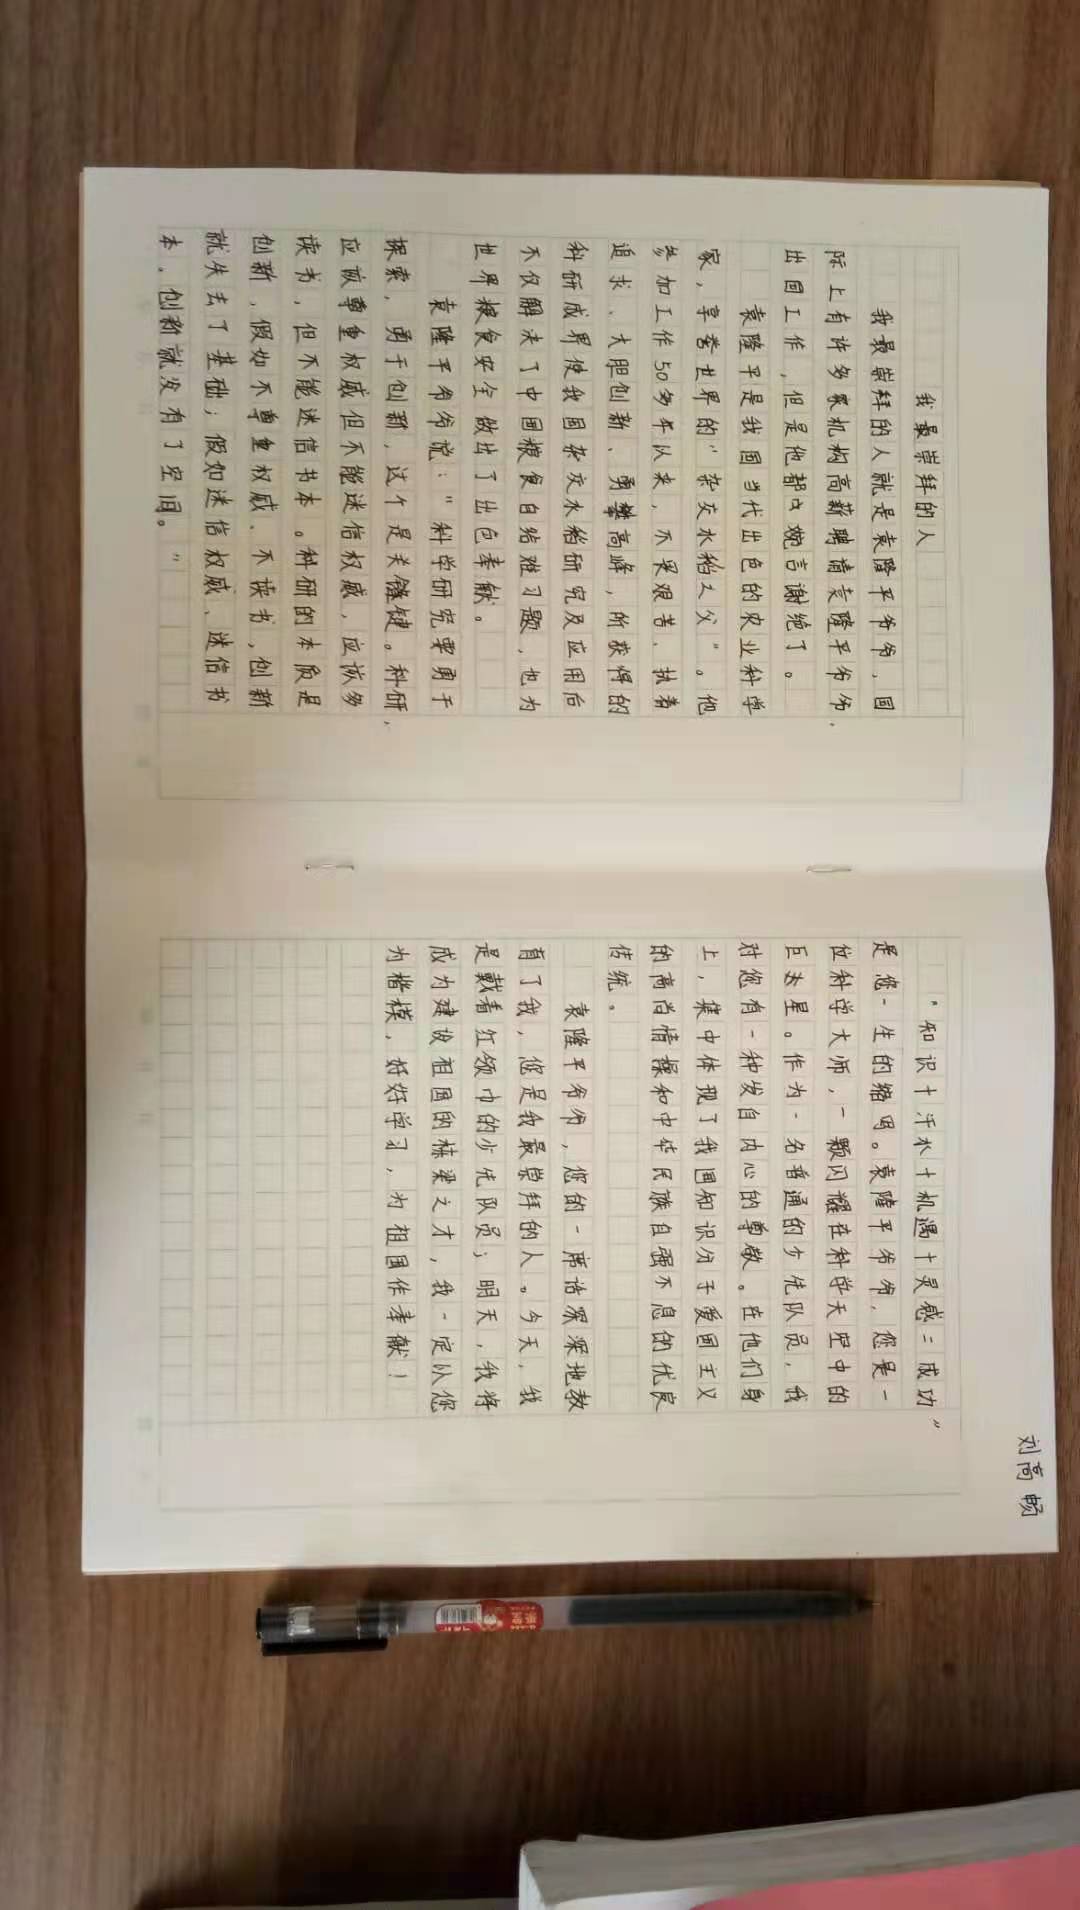 我最崇拜的人
我最崇拜的人就是袁隆平爷爷，国
际上有许多家机构高薪聘请袁隆平爷爷，
出国工作，但是他都婉言谢绝了。
袁隆平是我国当代出色的农业科学
家，享誉世界的“杂交水稻之父”。他
参加工作50多年以来，不畏艰苦、执着
追求、大胆创新、勇攀高峰，所获得的
科研成果使我国杂交水稻研究及应用后
不仅解决了中国粮食自给难习题，也为
世界粮食安全做出了出色奉献。
袁隆平爷爷说：“科学研究要勇于
探索，勇于创新，这个是关键。科研，
应该尊重权威但不能迷信权威，应该多
读书，但不能迷信书本。科研的本质是
创新，假如不尊重权威、不读书，创新
就失去了基础；假如迷信权威、迷信书
本，创新就没有了空间。”
“知识十汗水十机遇十灵感=成功”
是您一生的缩写。袁隆平爷爷，您是一
位科学大师，一颗闪耀在科学天空中的
巨星。作为一名普通的少先队员，我
对您有一种发自内心的尊敬。在他们身
上，集中体现了我国知识分子爱国主义
的高尚情操和中华民族自强不息的优良
传统。
袁隆平爷爷，您的一席话深深地教
育了我，您是我最崇拜的人。今天，我
是戴着红领巾的少先队员；明天，我将
成为建设祖国的栋梁之才，我一定以您
为楷模，好好学习，为祖国作奉献！
刘高畅